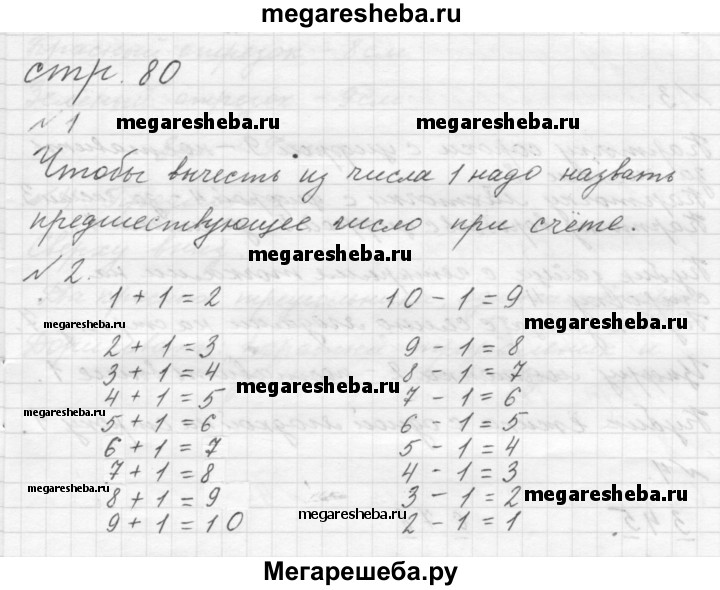 megaresheba.ru
стр. 80
№ 1
megaresheba.ru megaresheba.ru
Чтобы вычесть из числа 1 надо назвать
предшествующее число при счёте.
megaresheba.ru
№ 2.
1 + 1 = 2 10 - 1 = 9
megaresheba.ru megaresheba.ru
2 + 1 = 3 9 - 1 = 8
3 + 1 = 4 8 - 1 = 7
megaresheba.ru
4 + 1 = 5 7 - 1 = 6
megaresheba.ru
5 + 1 = 6 6 - 1 = 5
6 + 1 = 7 5 - 1 = 4
7 + 1 = 8 4 - 1 = 3
megaresheba.ru megaresheba.ru
8 + 1 = 9 3 - 1 = 2
megaresheba.ru
9 + 1 = 10 2 - 1 = 1
Мегарешеба.ру